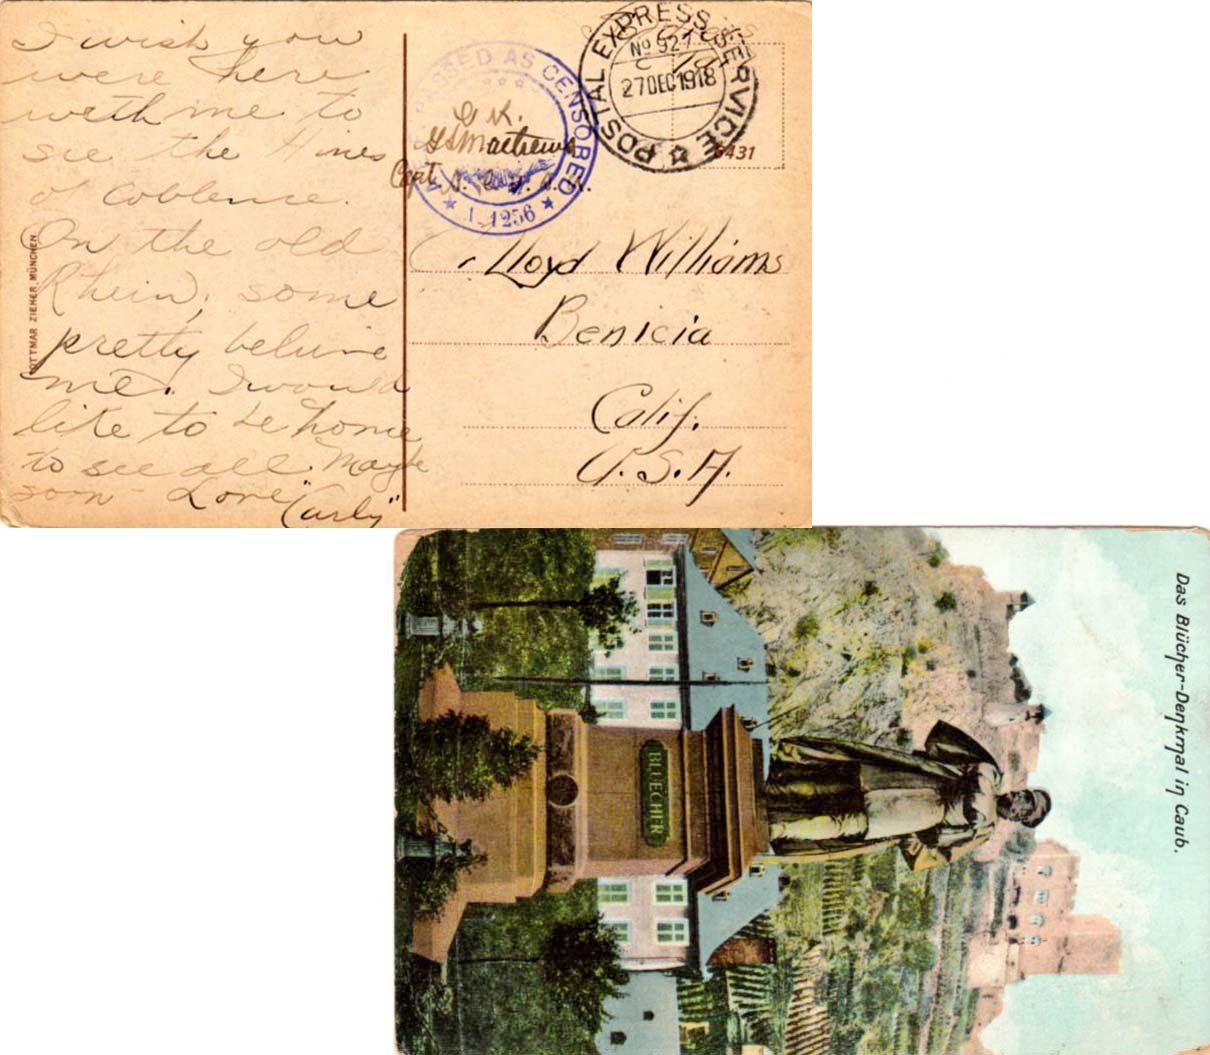 I wish you
were here
with me to
see the Hines
of Coblence.
On the old
Rhein, some
pretty belivie
me. I would
like to be home
to see all. Maybe
soon - Love
"Curly"
OTTMAR ZIEHER, MÜNCHEN
PASSED AS CENSORED
O.K.
Capt.
1.1256
POSTAL EXPRESS SERVICE
No 921
27 DEC 1918
6431
Lloyd Williams
Benicia
Calif.
U.S.A.
Das Blücher-Denkmal in Caub.
BLUECHER